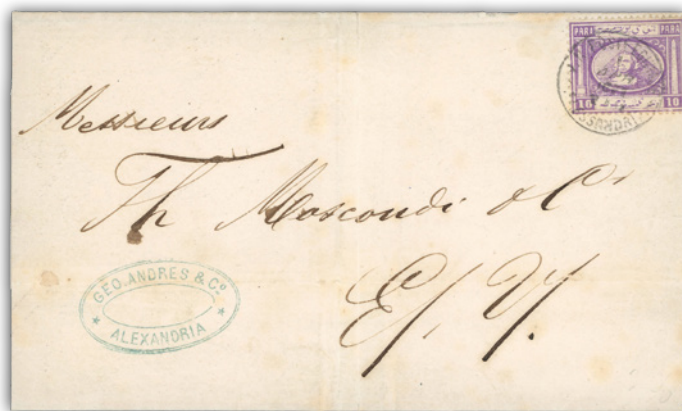 PARI PARA
10 10
Messieurs
Th Moscondi & Cº
E/. V/.
GEO. ANDRES & Cº
ALEXANDRIA